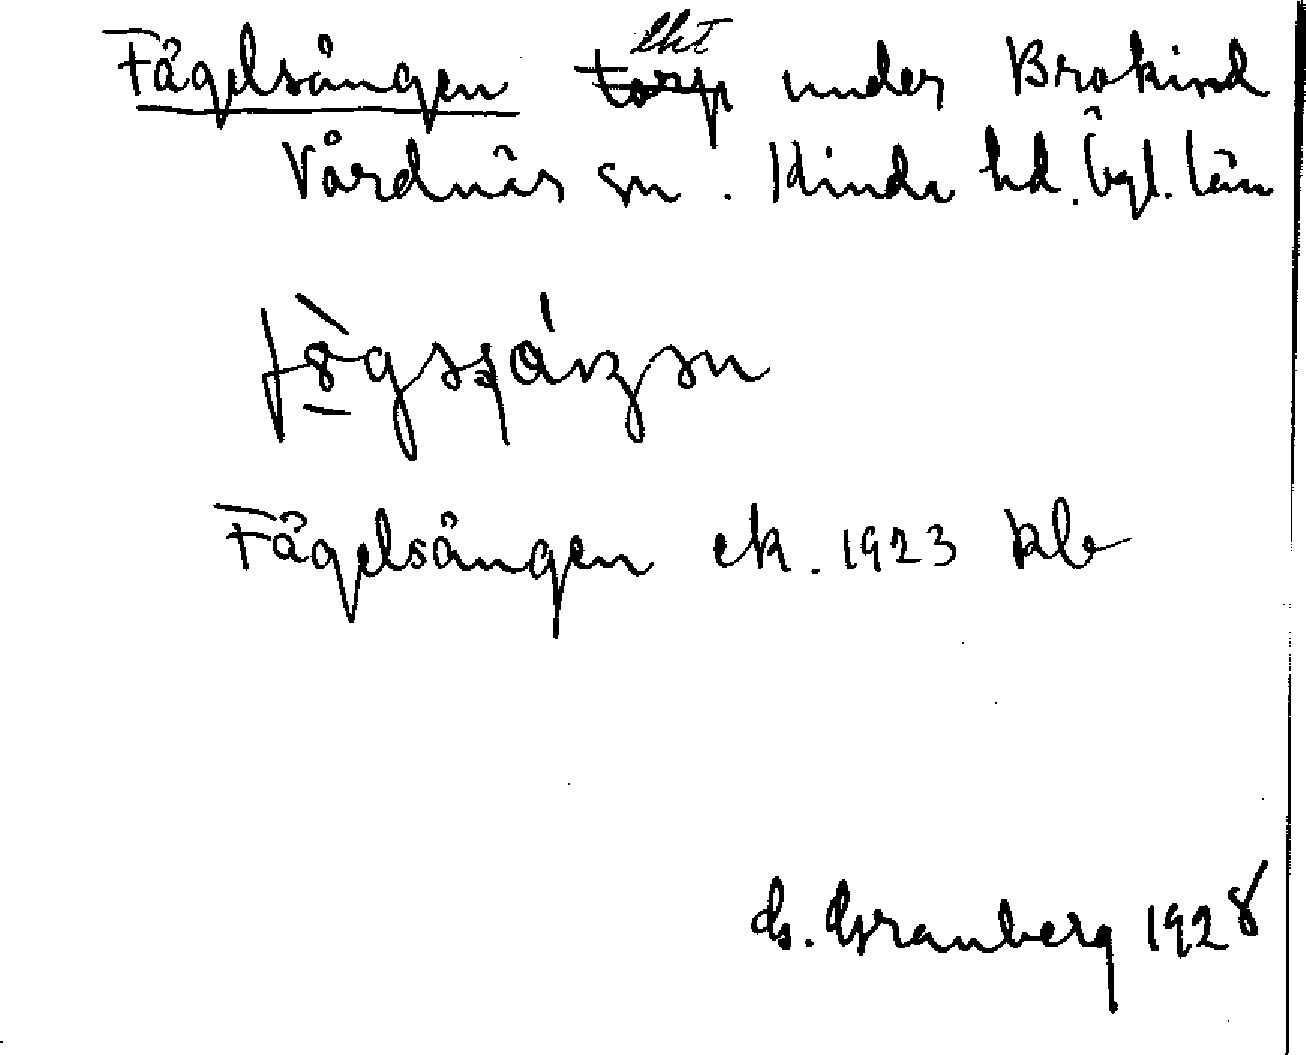 Fågelsången ~~torp~~ lht under Brokind
Vårdnäs sn. Kinda hd. Ögl. län
Fågelsången ek. 1923 kb
G. Granberg 1928